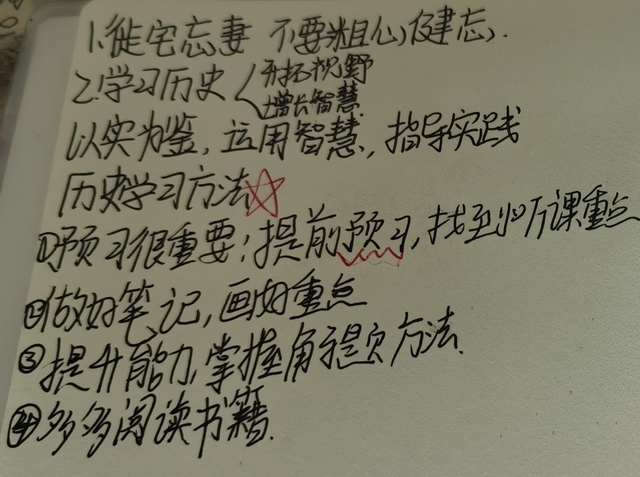 1.徙宅忘妻 不要粗心,健忘.
2.学习历史
开拓视野
增长智慧
以实为鉴,运用智慧,指导实践
历史学习方法☆
①预习很重要:提前预习,找至听课重点
②做好笔记,画好重点
③提升能力,掌握解题方法.
④多多阅读书籍.